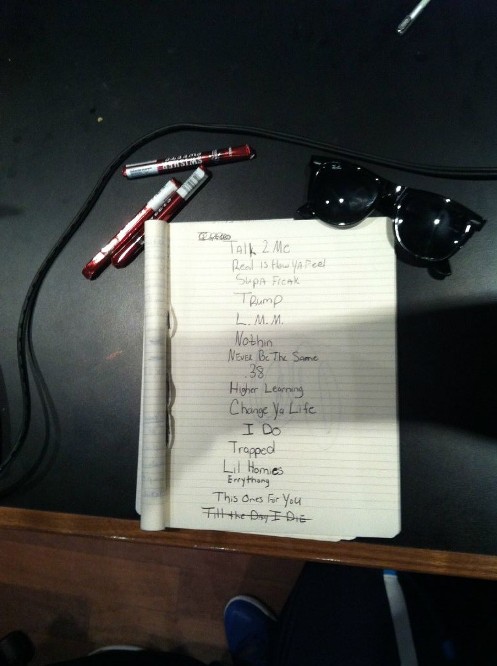 SWISHER
SWEETS
Talk 2 Me
Real Is How Ya Feel
Supa Freak
Trump
L.M.M.
Nothin
Never Be The Same
.38
Higher Learning
Change Ya Life
I Do
Trapped
Lil Homies
Errythang
This Ones For You
Till the Day I Die